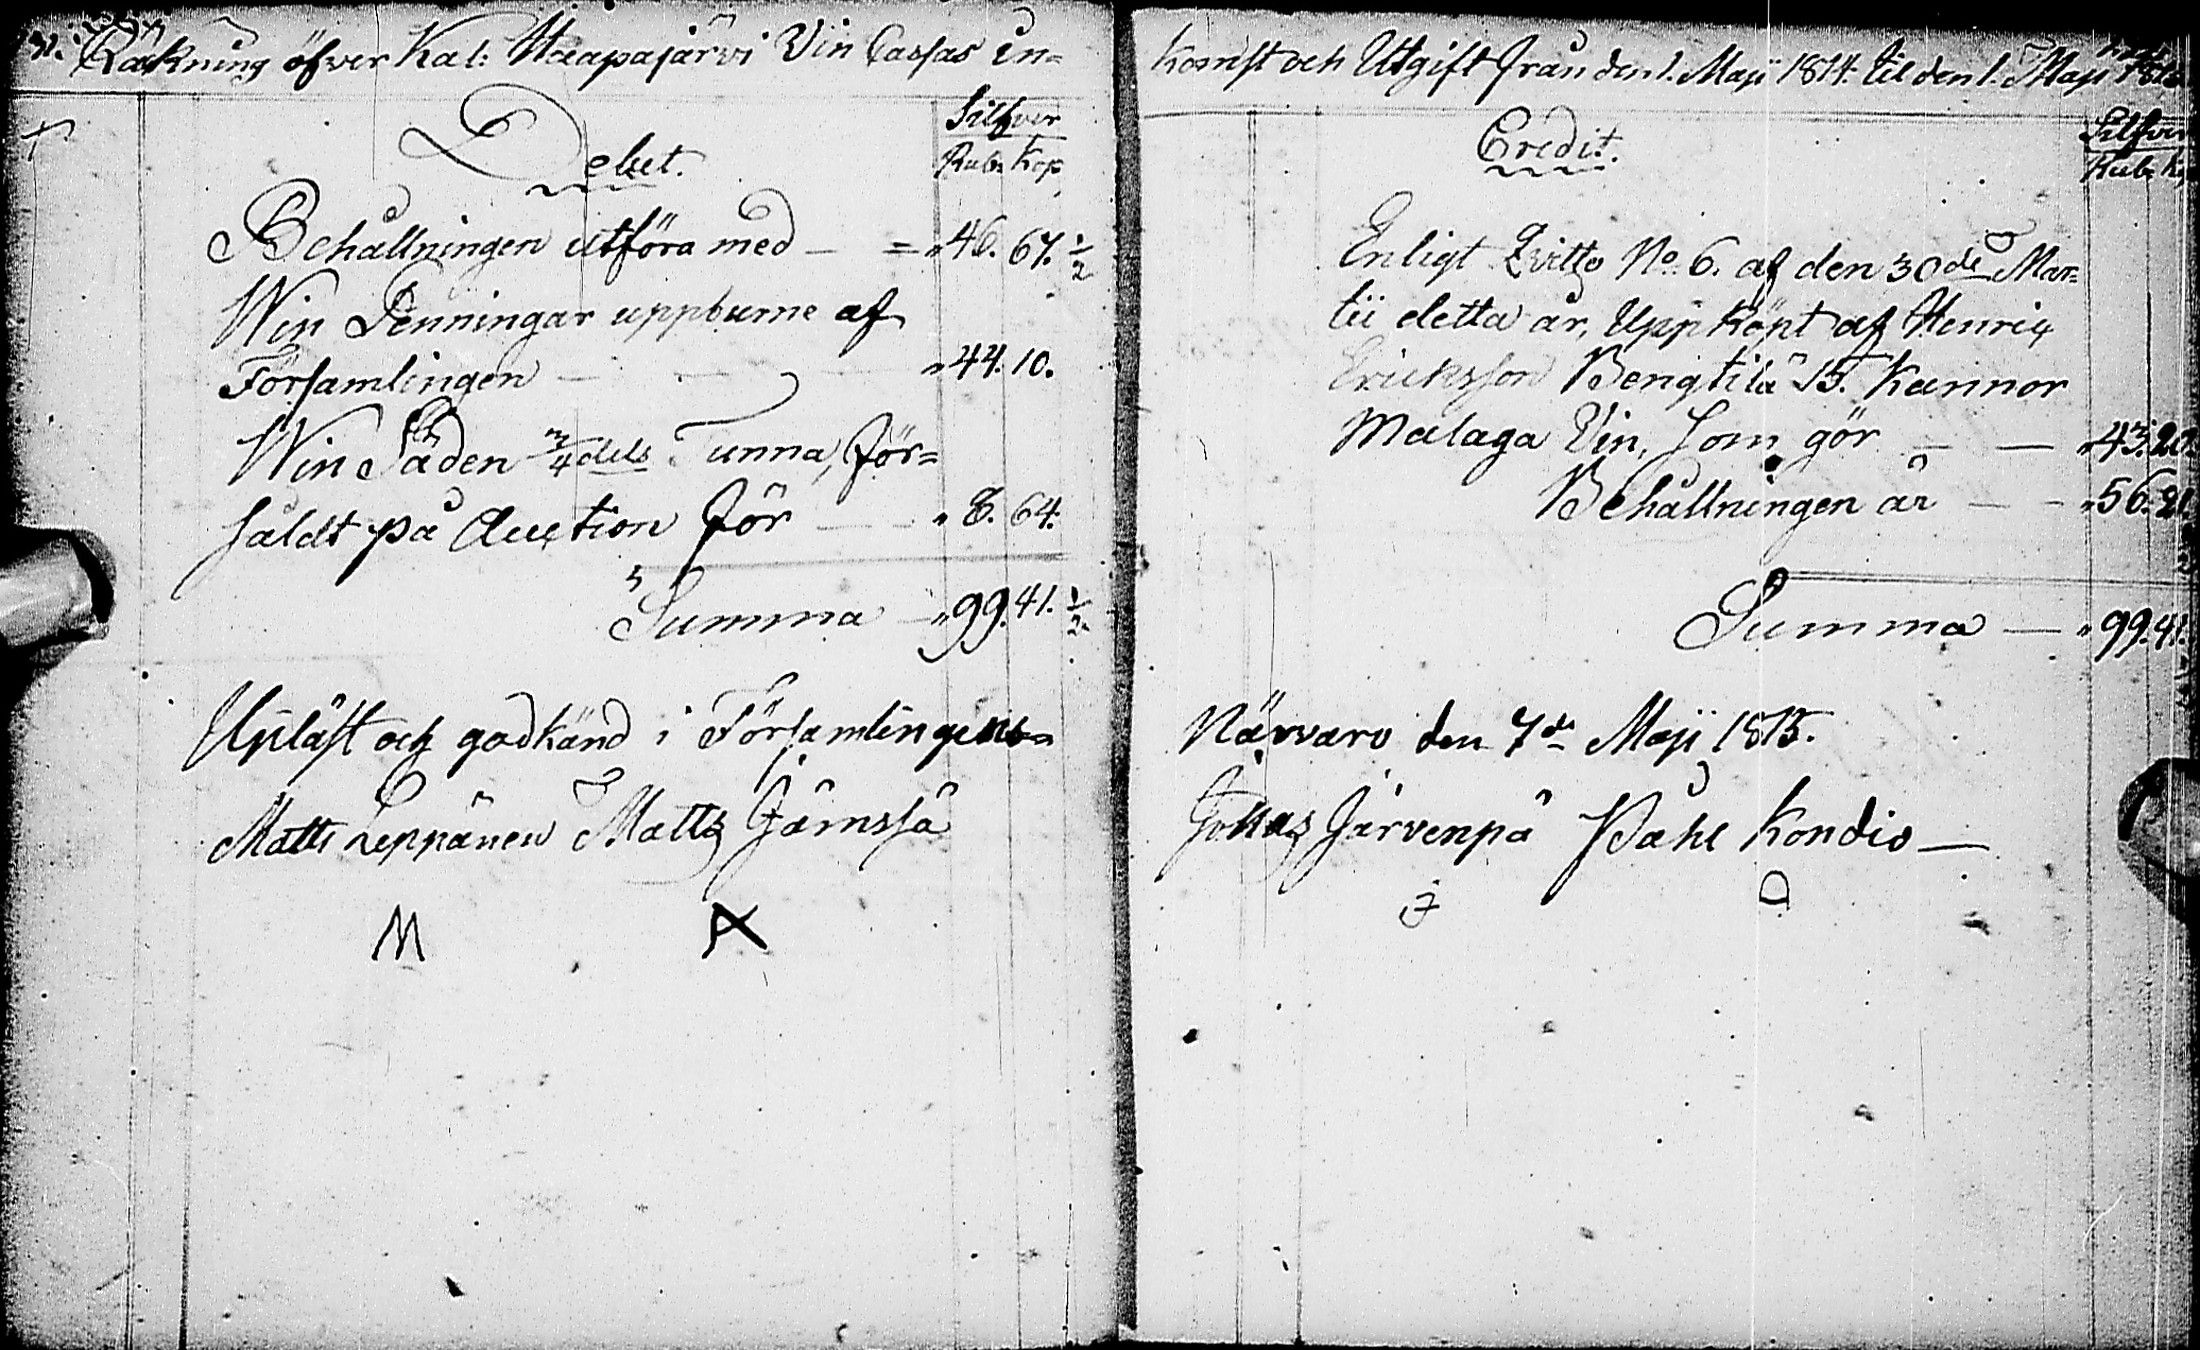 31. Räkning öfver Kal: Haapajärvi Vin Cassas in-
Debet.
Silfver
Rub: Kop
Behållningen utföra med — = „ 46. 67. 1/2
Win Penningar uppburne af
Församlingen — — — „ 44. 10.
Win Säden 3/4 dels Tunna, för-
såldt på Auction för — „ 8. 64.
Summa — „ 99. 41. 1/2
Upläst och godkänd i Församlingens
Matts Leppänen Matts Jämssä
M
komst och Utgift från den 1. Maji 1814. til den 1. Maji 1815
Credit.
Silfver
Rub: Ko
Enligt Qvitto No. 6. af den 30de Mar-
tii detta år, Uppköpt af Henric
Ericksson Bengtilä 15. Kannor
Malaga Vin, som gör — — „ 43. 20.
Behållningen är — — „ 56. 21. 1/2
Summa — „ 99. 41. 1/2
Närvaro den 7de Maji 1815.
Johas Järvenpä Påhl Kondio —